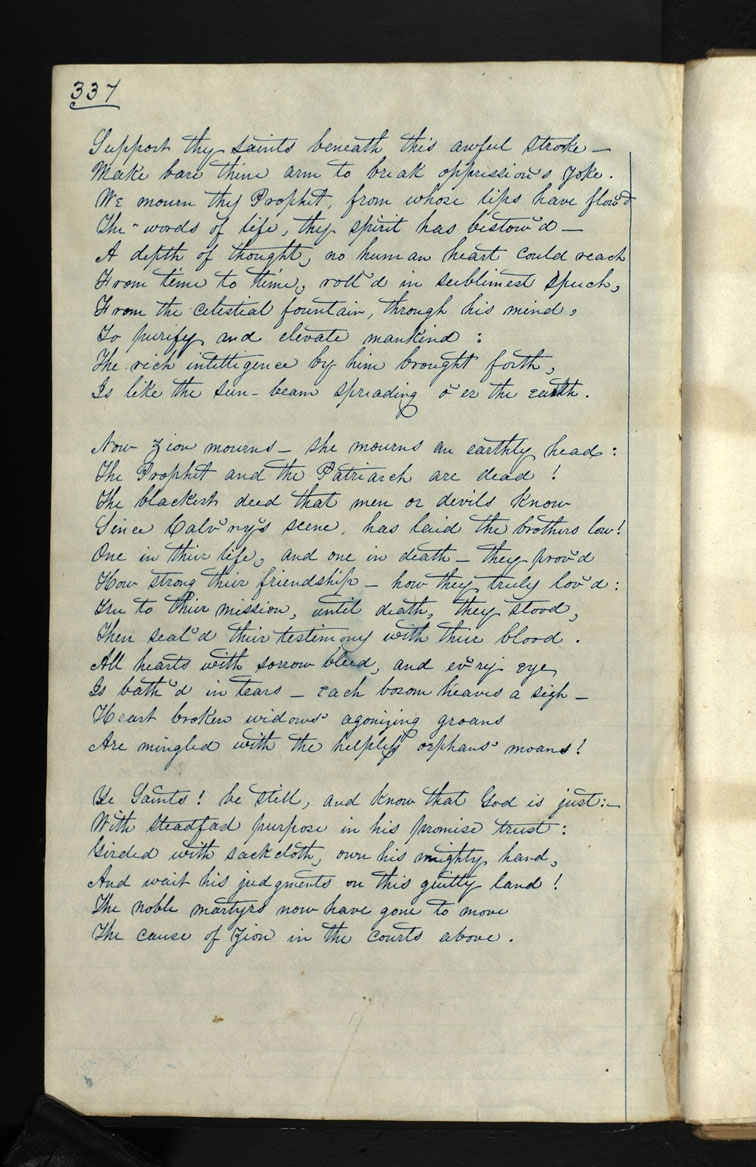 337
Support thy saints beneath this awful stroke—
Make bare thine arm to break oppression's yoke.
We mourn thy Prophet, from whose lips have flow'd
The words of life, thy spirit has bestow'd—
A depth of thought, no human heart could reach
From time to time, roll'd in sublimest speech,
From the celestial fountain, through his mind,
To purify and elevate mankind:
The rich intelligence by him brought forth,
Is like the sun-beam spreading o'er the earth.

Now Zion mourns—she mourns an earthly head:
The Prophet and the Patriarch are dead!
The blackest deed that men or devils know
Since Calv'ry's scene, has laid the brothers low!
One in their life, and one in death—they prov'd
How strong their friendship—how they truly lov'd:
True to their mission, until death, they stood,
Then seal'd their testimony with their blood.
All hearts with sorrow bleed, and ev'ry eye
Is bath'd in tears—each bosom heaves a sigh—
Heart broken widows' agonizing groans
Are mingled with the helpless orphans' moans!

Ye Saints! be still, and know that God is just:—
With steadfad purpose in his promise trust:
Girded with sackcloth, own his mighty hand,
And wait his judgments on this guilty land!
The noble martyrs now have gone to move
The cause of Zion in the courts above.